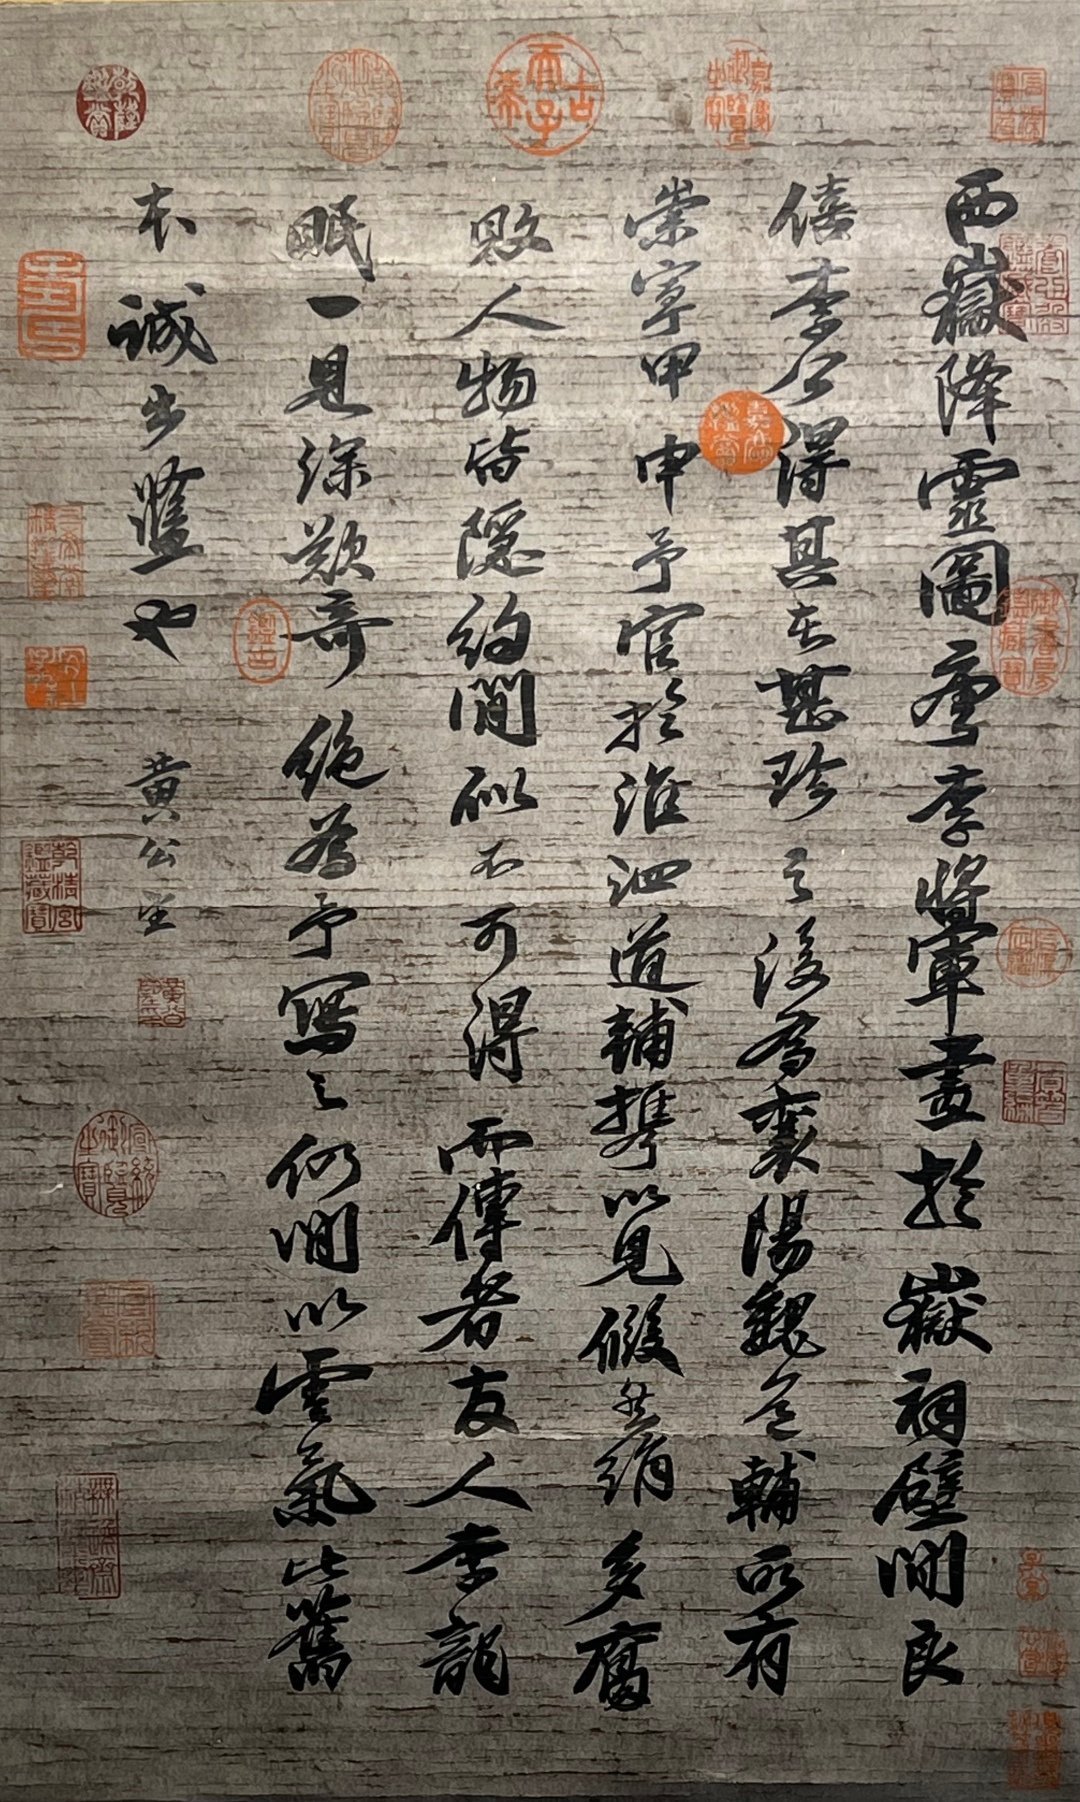 西嶽降靈圖唐李將軍畫於嶽祠壁間良
僖李公得其本甚珍之後為襄陽魏道輔所有
崇寧甲申予官於淮泗道輔攜以見假然絹多腐
敗人物皆隱約間似不可得而傳者友人李龍
眠一見深歎奇絕為予寫之仍間以雲氣比舊
本誠出藍也 黃公望
古希天子
嘉慶鑑賞